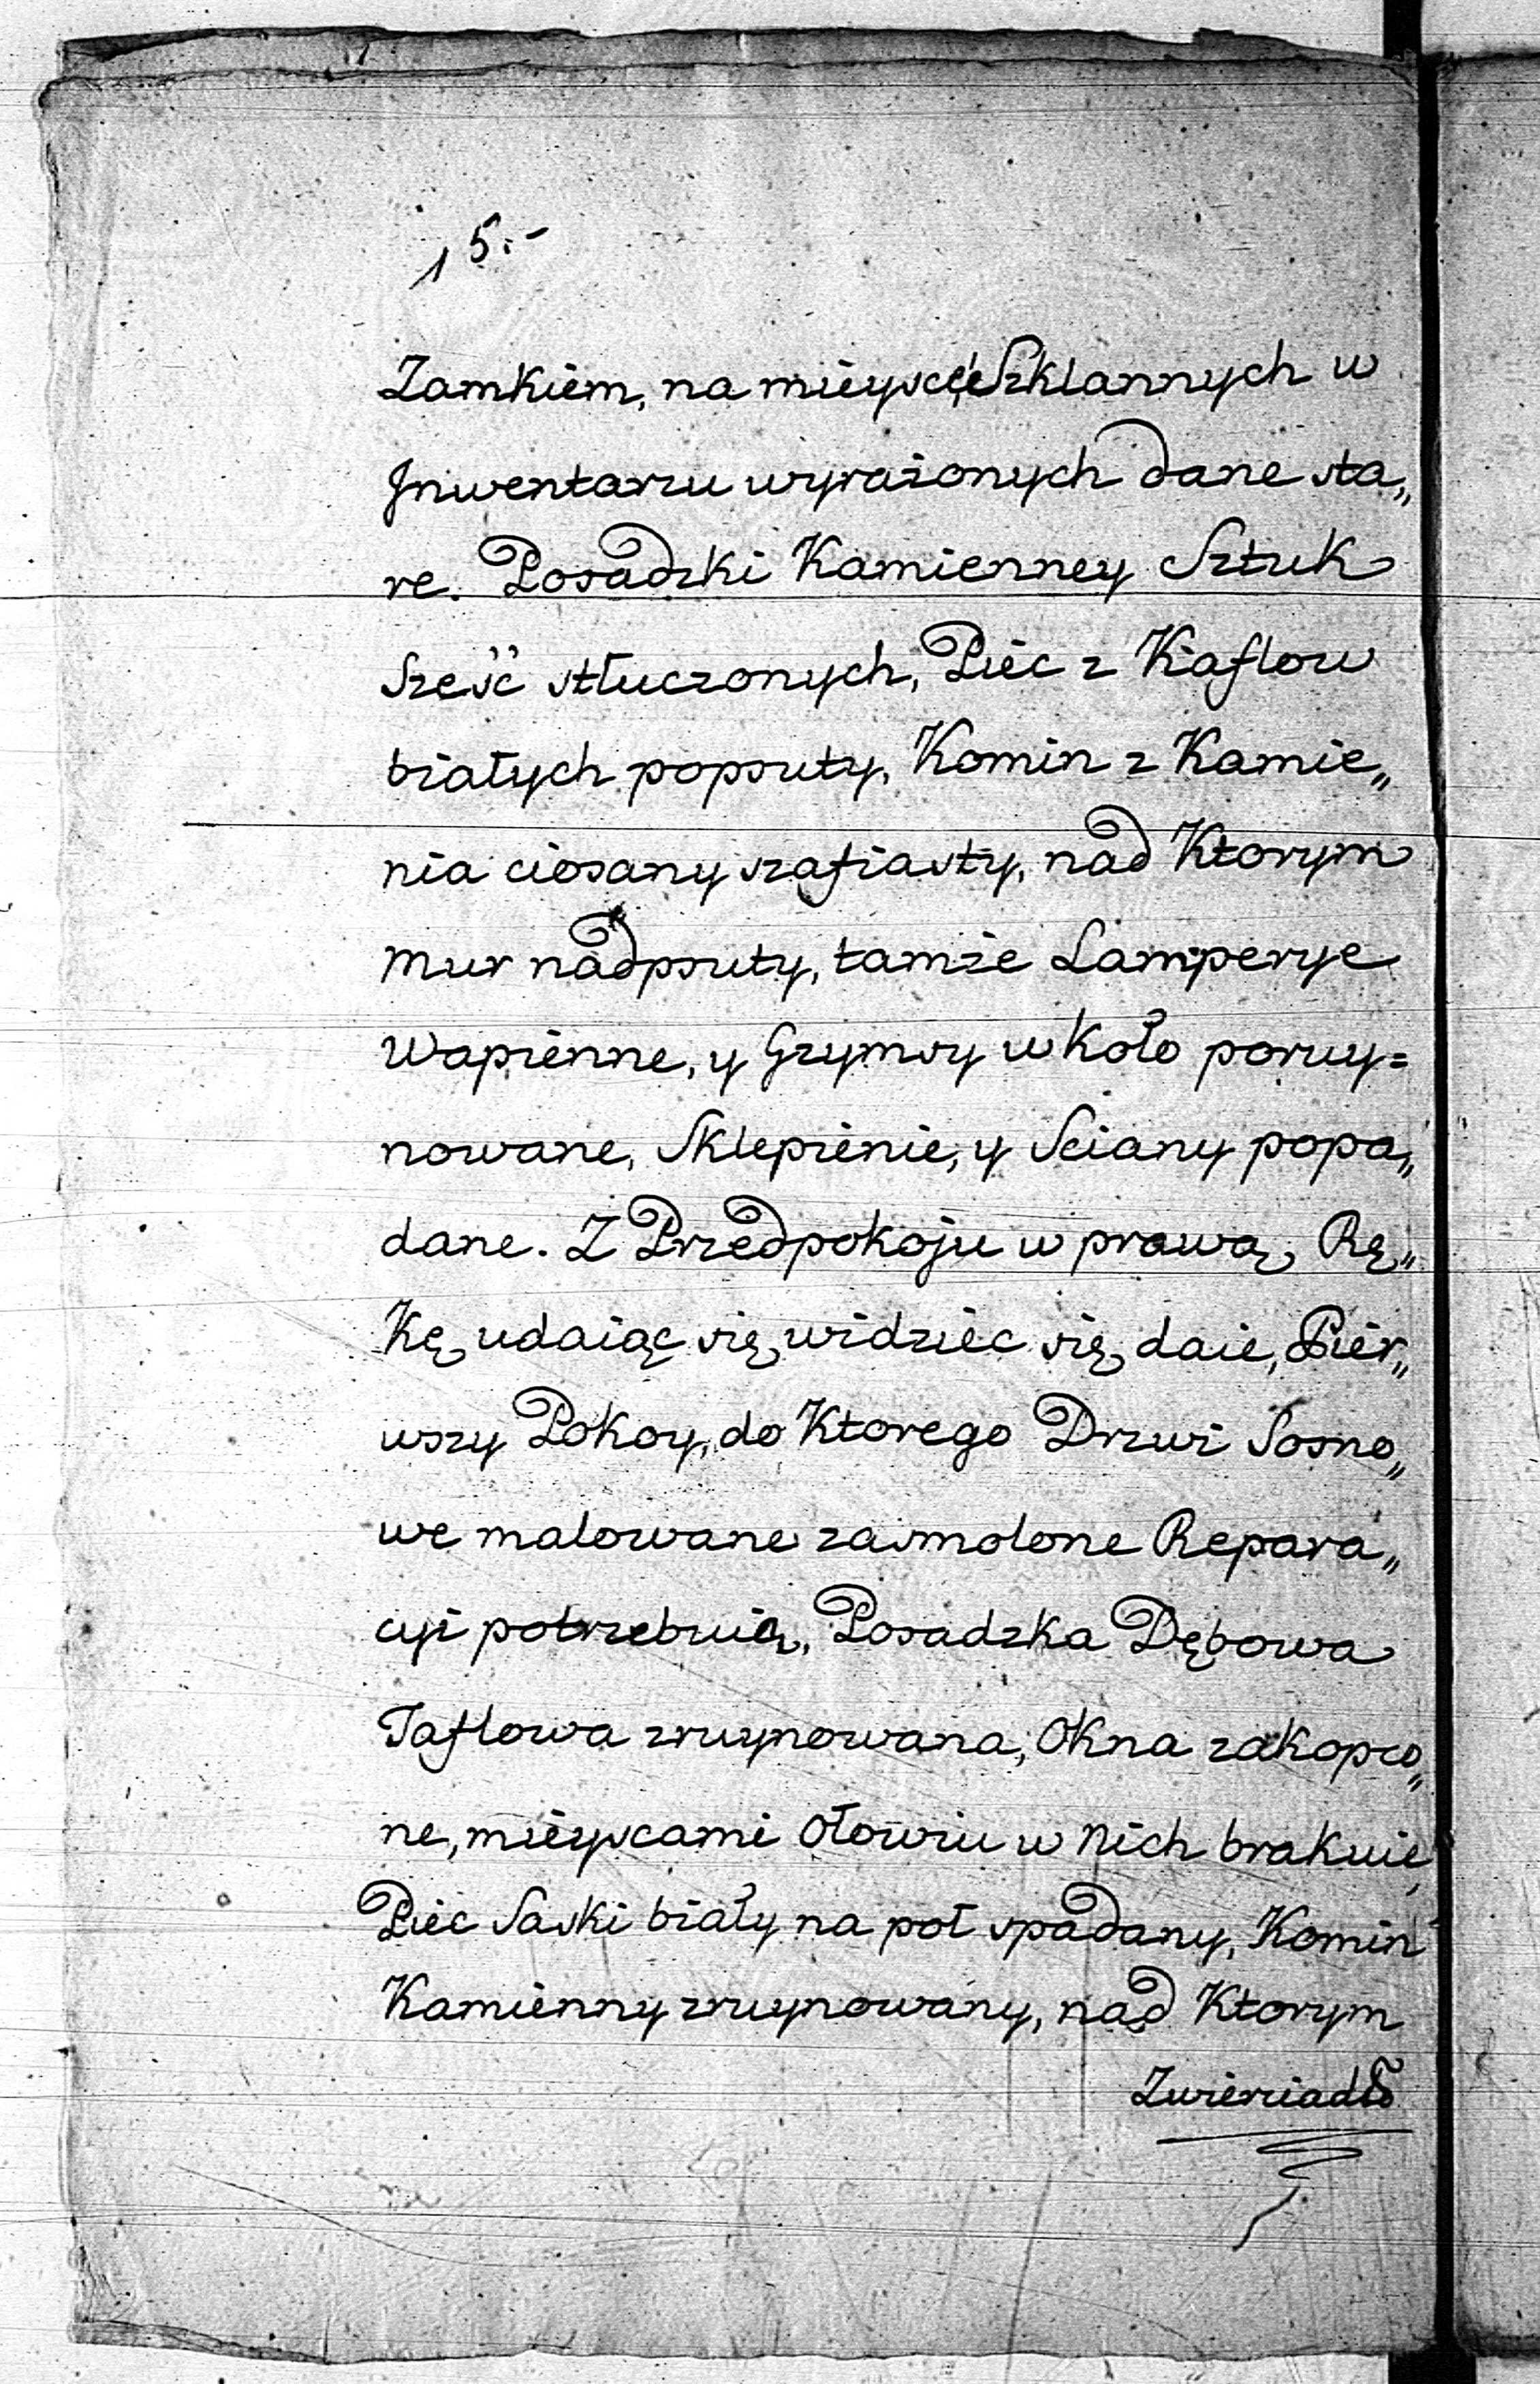 15.-
Zamkiem, na mieysce Szklannych w
Jnwentarzu wyrażonych dane sta„
re. Posadzki Kamienney Sztuk
Sześć stłuczonych, Piec z Kaflow
białych popsuty, Komin z Kamie„
nia ciosany szafiasty, nad Ktorym
Mur nadpsuty, tamże Lamperye
Wapienne, y Gzymsy w Koło poruy=
nowane, Sklepienie, y Sciany popa„
dane. Z Przedpokoju w prawą Rę„
Kę udaiąc się widziec się daie, Pier„
wszy Pokoy, do Ktorego Drzwi Sosno„
we malowane zasmolone Repara„
cyi potrzebuią, Posadzka Dębowa
Taflowa zruynowana, Okna zakopco„
ne, mieyscami Ołowiu w Nich brakuie,
Piec Saski biały na poł spadany, Komin
Kamienny zruynowany, nad Ktorym
Zwierciadło